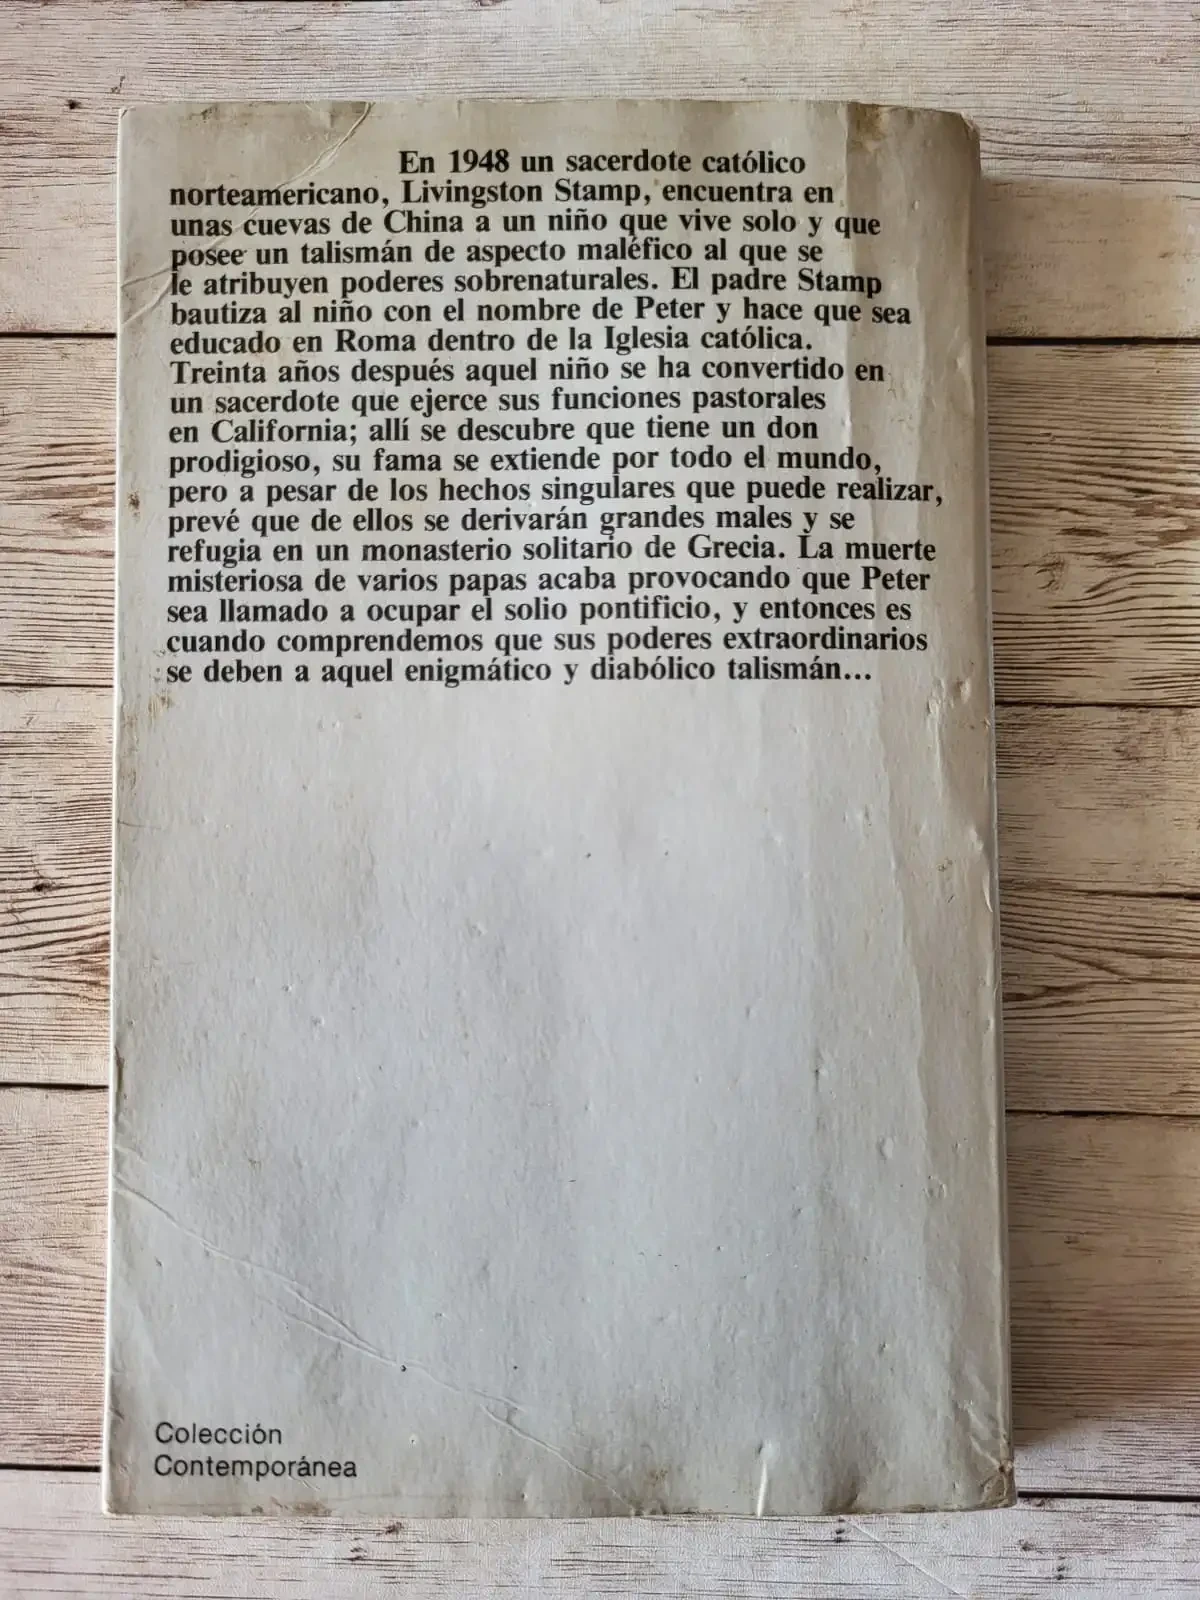 En 1948 un sacerdote católico
norteamericano, Livingston Stamp, encuentra en
unas cuevas de China a un niño que vive solo y que
posee un talismán de aspecto maléfico al que se
le atribuyen poderes sobrenaturales. El padre Stamp
bautiza al niño con el nombre de Peter y hace que sea
educado en Roma dentro de la Iglesia católica.
Treinta años después aquel niño se ha convertido en
un sacerdote que ejerce sus funciones pastorales
en California; allí se descubre que tiene un don
prodigioso, su fama se extiende por todo el mundo,
pero a pesar de los hechos singulares que puede realizar,
prevé que de ellos se derivarán grandes males y se
refugia en un monasterio solitario de Grecia. La muerte
misteriosa de varios papas acaba provocando que Peter
sea llamado a ocupar el solio pontificio, y entonces es
cuando comprendemos que sus poderes extraordinarios
se deben a aquel enigmático y diabólico talismán...
Colección
Contemporánea